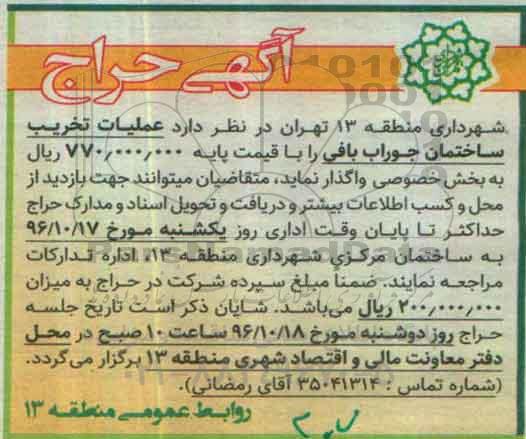 آگهی حراج
شهرداری منطقه ۱۳ تهران در نظر دارد عملیات تخریب
ساختمان جوراب بافی را با قیمت پایه ۷۷۰,۰۰۰,۰۰۰ ریال
به بخش خصوصی واگذار نماید، متقاضیان میتوانند جهت بازدید از
محل و کسب اطلاعات بیشتر و دریافت و تحویل اسناد و مدارک حراج
حداکثر تا پایان وقت اداری روز یکشنبه مورخ ۹۶/۱۰/۱۷
به ساختمان مرکزی شهرداری منطقه ۱۳، اداره تدارکات
مراجعه نمایند. ضمناً مبلغ سپرده شرکت در حراج به میزان
۲۰۰,۰۰۰,۰۰۰ ریال می‌باشد. شایان ذکر است تاریخ جلسه
حراج روز دوشنبه مورخ ۹۶/۱۰/۱۸ ساعت ۱۰ صبح در محل
دفتر معاونت مالی و اقتصاد شهری منطقه ۱۳ برگزار می‌گردد.
(شماره تماس : ۳۵۰۴۱۳۱۴ آقای رمضانی).
روابط عمومی منطقه ۱۳